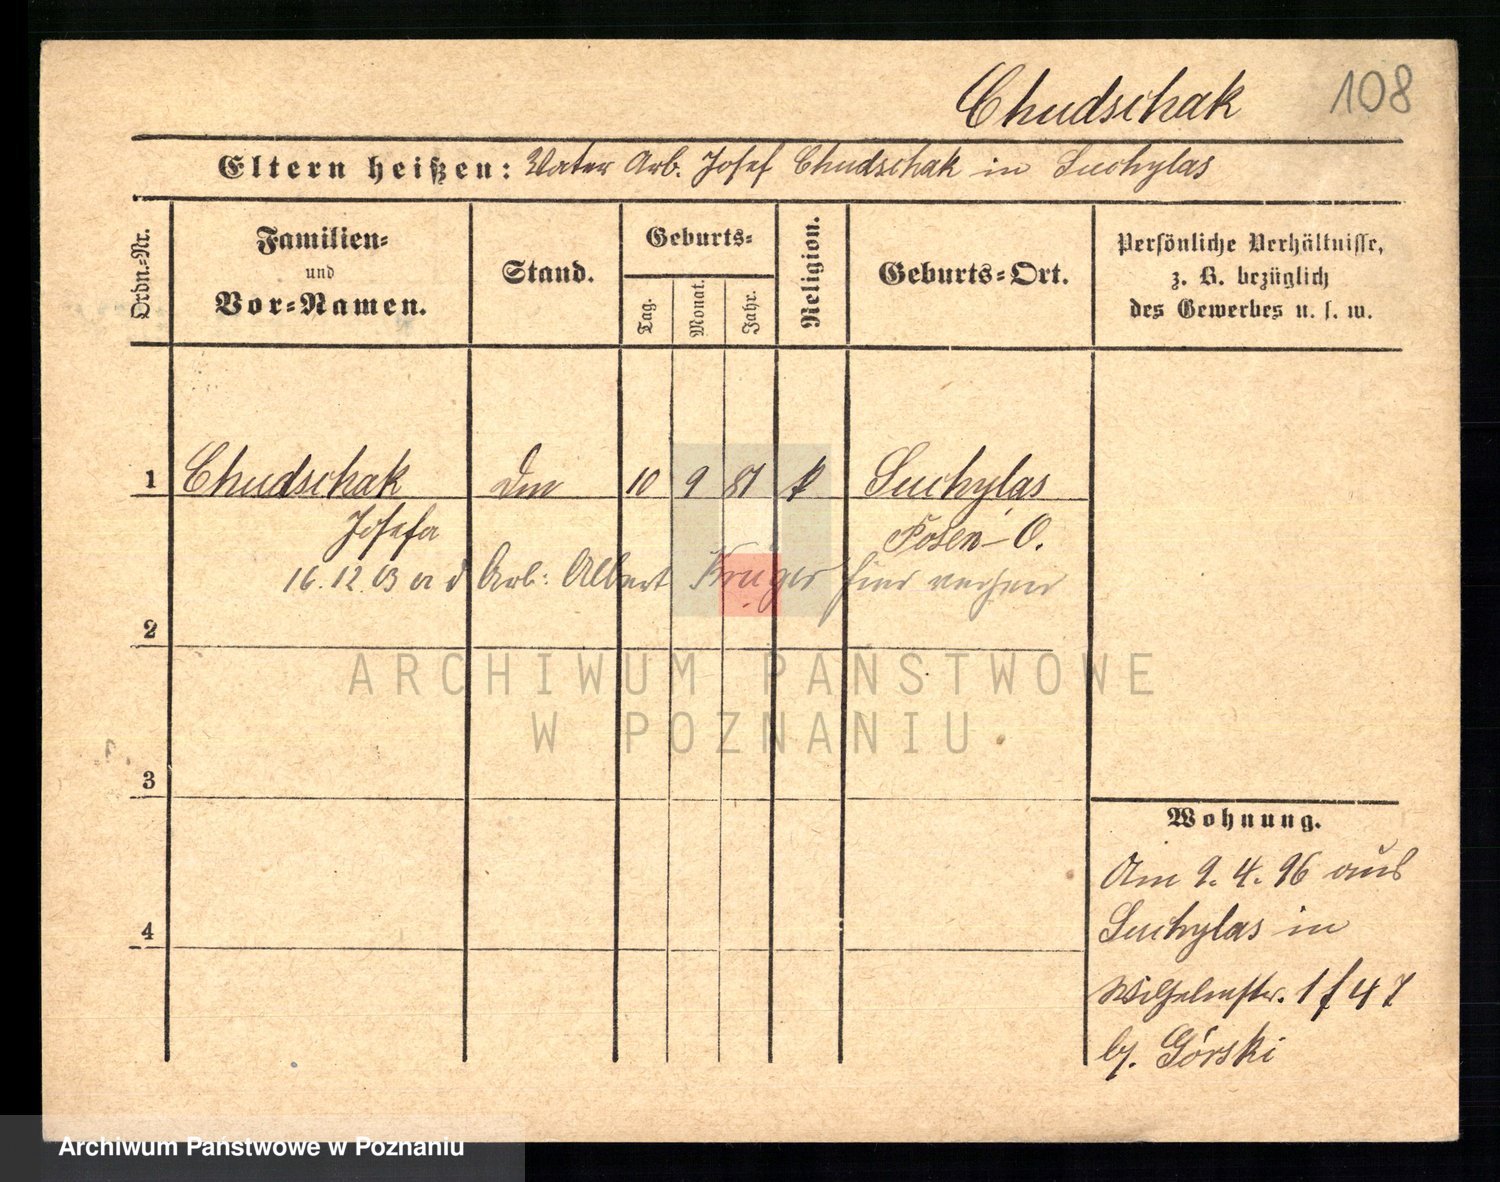 Chudschak 108
Eltern heißen: Vater Arb. Josef Chudschak in Suchylas
Ordn.-Nr.
Familien-
und
Vor-Namen.
Stand.
Geburts-
Tag.
Monat.
Jahr.
Religion.
Geburts-Ort.
Persönliche Verhältnisse,
z. B. bezüglich
des Gewerbes u. s. w.
1 Chudschak 10 9 81 k Suchylas
Josefa Posen-O.
16.12.03 Arb: Albert Krüger hier
2
ARCHIWUM PAŃSTWOWE
W POZNANIU
3
4
Wohnung.
Am 9. 4. 96 aus
Suchylas in
Wilhelmstr. 1 f 47
b/. Górski
Archiwum Państwowe w Poznaniu